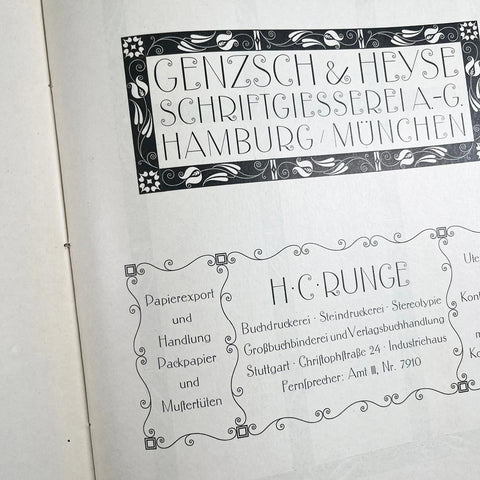 GENZSCH & HEYSE
SCHRIFTGIESSEREI A.-G.
HAMBURG / MÜNCHEN
Papierexport
und
Handlung
Packpapier
und
Muſtertüten
H·C·RUNGE
Buchdruckerei · Steindruckerei · Stereotypie
Großbuchbinderei und Verlagsbuchhandlung
Stuttgart · Chriſtophſtraße 24 · Industriehaus
Fernſprecher: Amt II, Nr. 7910